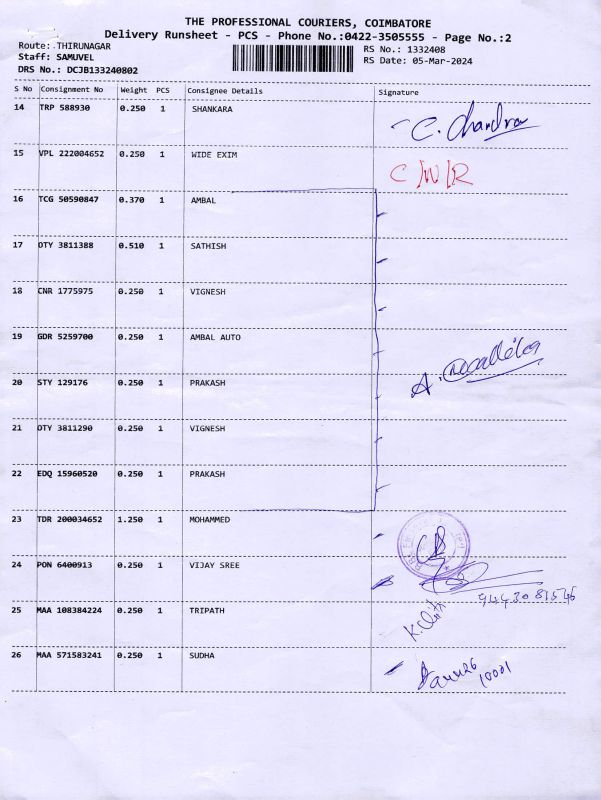 THE PROFESSIONAL COURIERS, COIMBATORE
Delivery Runsheet - PCS - Phone No.:0422-3505555 - Page No.:2
Route: THIRUNAGAR
Staff: SAMUVEL
DRS No.: DCJB133240802
RS No.: 1332408
RS Date: 05-Mar-2024
S No Consignment No Weight PCS Consignee Details Signature
14 TRP 588930 0.250 1 SHANKARA C. Chandra
15 VPL 222004652 0.250 1 WIDE EXIM C/N/R
16 TCG 50590847 0.370 1 AMBAL
17 OTY 3811388 0.510 1 SATHISH
18 CNR 1775975 0.250 1 VIGNESH
19 GDR 5259700 0.250 1 AMBAL AUTO
20 STY 129176 0.250 1 PRAKASH
21 OTY 3811290 0.250 1 VIGNESH
22 EDQ 15960520 0.250 1 PRAKASH
23 TDR 200034652 1.250 1 MOHAMMED
24 PON 6400913 0.250 1 VIJAY SREE
25 MAA 108384224 0.250 1 TRIPATH
26 MAA 571583241 0.250 1 SUDHA